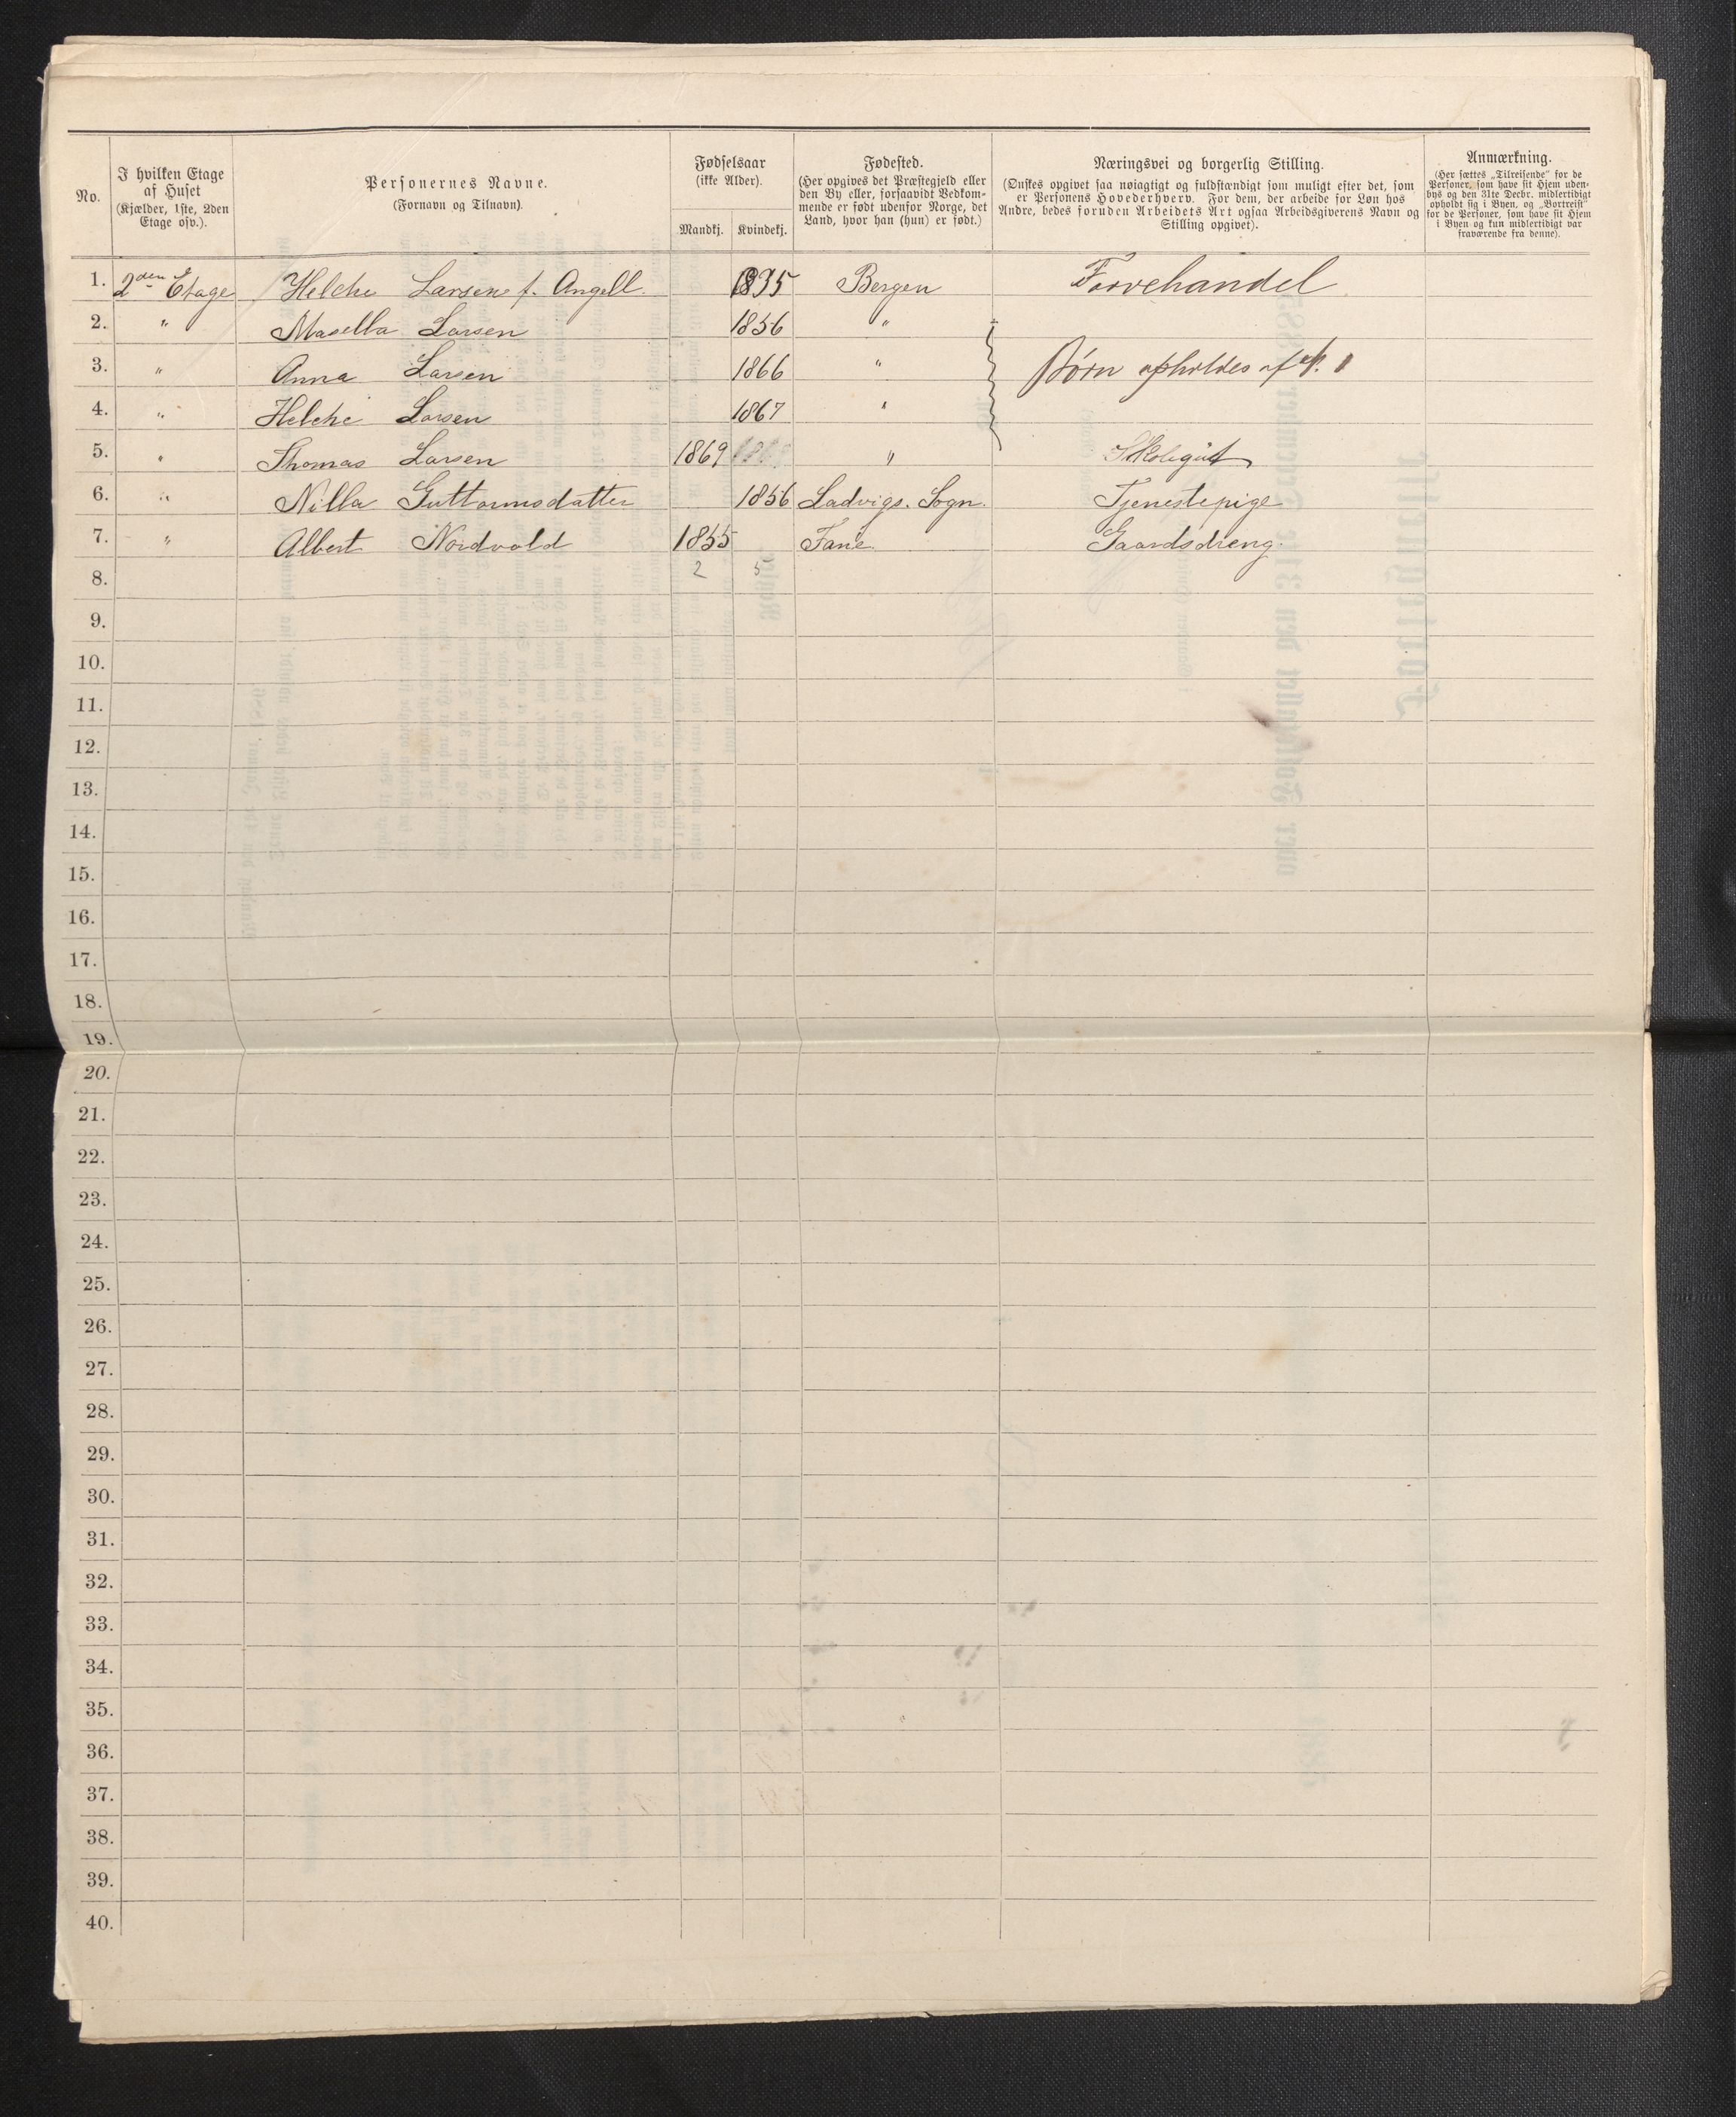 No.
I hvilken Etage
af Huset
(Kjælder, 1ste, 2den
Etage osv.).
Personernes Navne.
(Fornavn og Tilnavn).
Fødselsaar
(ikke Alder).
Mandkj. Kvindekj.
Fødested.
(Her opgives det Præstegjeld eller
den By eller, forsaavidt Vedkom-
mende er født udenfor Norge, det
Land, hvor han (hun) er født.)
Næringsvei og borgerlig Stilling.
(Ønskes opgivet saa nøiagtigt og fuldstændigt som muligt efter det, som
er Personens Hovederhverv. For dem, der arbeide for Løn hos
Andre, bedes foruden Arbeidets Art ogsaa Arbeidsgiverens Navn og
Stilling opgivet).
Anmærkning.
(Her sættes „Tilreisende" for de
Personer, som have sit Hjem uden-
bys og den 31te Decbr. midlertidigt
opholdt sig i Byen, og „Bortreist"
for de Personer, som have sit Hjem
i Byen og kun midlertidigt var
fraværende fra denne).
1. 2den Etage Helche Larsen f. Angell. 1835 Bergen Farvehandel
2. " Maselba Larsen 1856 "
3. " Anna Larsen 1866 " Børn opholdes af N. 1
4. " Helche Larsen 1867 "
5. " Thomas Larsen 1869 " Skolegut
6. " Nilla Guttormsdatter 1856 Ladvigs. Sogn. Tjenestepige
7. " Albert Nordvold 1855 Fane. Gaardsdreng.
8. 2 5
9.
10.
11.
12.
13.
14.
15.
16.
17.
18.
19.
20.
21.
22.
23.
24.
25.
26.
27.
28.
29.
30.
31.
32.
33.
34.
35.
36.
37.
38.
39.
40.